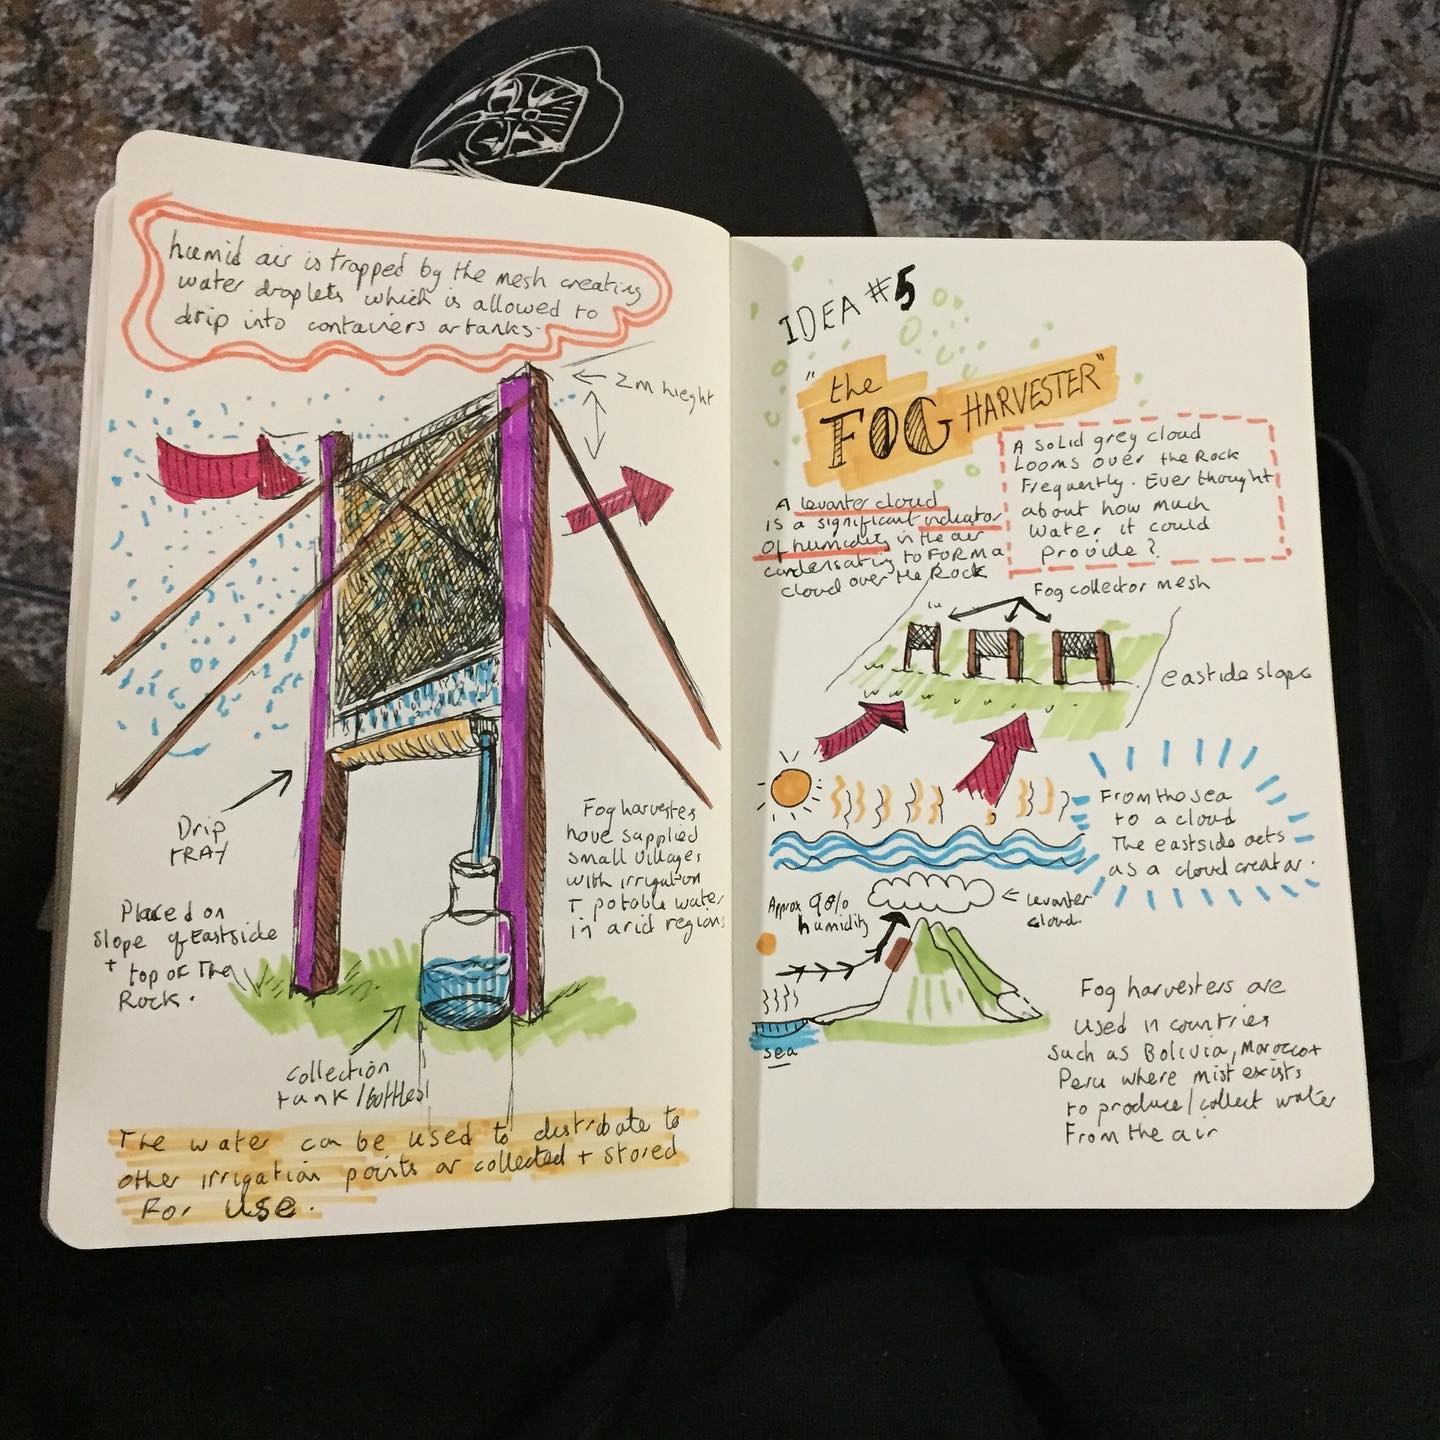 humid air is trapped by the mesh creating
water droplets which is allowed to
drip into containers or tanks.
2m hieght
Drip
TRAY
Placed on
Slope of Eastside
+ top of The
Rock.
Fog harvesters
have supplied
small villages
with irrigation
+ potable water
in arid regions
collection
tank/bottles
The water can be used to distribute to
other irrigation points or collected + stored
For use.
IDEA #5
"the
FOG HARVESTER"
A solid grey cloud
Looms over the Rock
Frequently. Ever thought
about how much
water it could
provide?
A levanter cloud
is a significant indicator
of humidity in the air
condensating to FORM a
cloud over the Rock
Fog collector mesh
eastside slope
From the sea
to a cloud
The eastside acts
as a cloud creator.
Approx 90%
humidity
levanter
cloud.
sea
Fog harvesters are
used in countries
such as Bolivia, Morocco +
Peru where mist exists
to produce/collect water
From the air